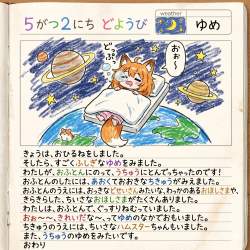 5がつ2にち どようび
weather
ゆめ
どっ、ぷ
おぉ〜
きょうは、おひるねをしました。
そしたら、すごくふしぎなゆめをみました。
わたしが、おふとんにのって、うちゅうにとんでったのです!
おふとんのしたには、あおくておおきなちきゅうがみえました。
おふとんのうえには、おっきなどせいさんみたいな、わっかのあるおほしさまや、
きらきらした、ちいさなおほしさまがたくさんありました。
わたしは、おふとんで、ぐっすりねむっていました。
おぉ〜〜、きれいだな〜、ってゆめのなかでおもいました。
ちきゅうのうえには、ちいさなハムスターちゃんもいました。
また、うちゅうのゆめをみたいです。
おわり